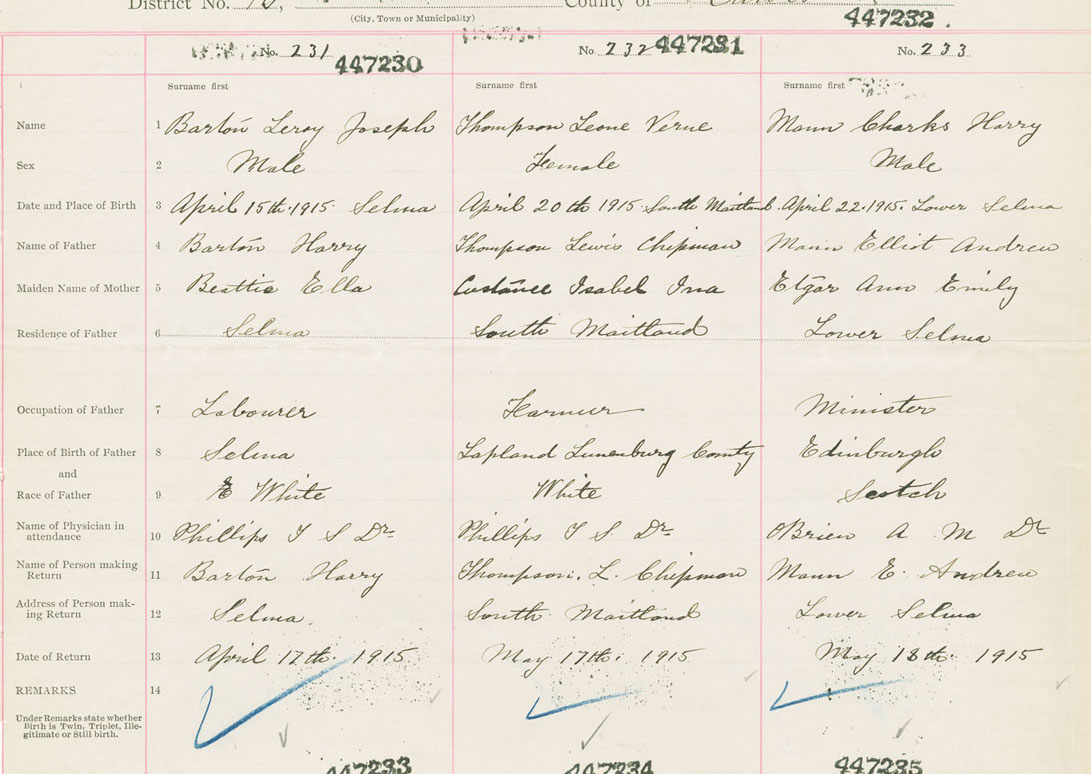 District No. County of
(City, Town or Municipality)
447232
No. 231 447230 No. 232 447231 No. 233
Surname first Surname first Surname first
Name 1 Barton Leroy Joseph Thompson Leone Verne Mann Charles Harry
Sex 2 Male Female Male
Date and Place of Birth 3 April 15th. 1915 Selma April 20th 1915 South Maitland April 22. 1915. Lower Selma
Name of Father 4 Barton Harry Thompson Lewis Chipman Mann Elliot Andrew
Maiden Name of Mother 5 Beattie Ella Isabel Ina Etgar Ann Emily
Residence of Father 6 Selma South Maitland Lower Selma
Occupation of Father 7 Labourer Farmer Minister
Place of Birth of Father 8 Selma Lapland Lunenburg County Edinburgh
and
Race of Father 9 White White Scotch
Name of Physician in
attendance 10 Phillips T S Dr Phillips T S Dr OBrien A M Dr
Name of Person making
Return 11 Barton Harry Thompson. L. Chipman Mann E. Andrew
Address of Person mak-
ing Return 12 Selma. South Maitland Lower Selma
Date of Return 13 April 17th. 1915 May 17th. 1915 May 18th. 1915
REMARKS 14
Under Remarks state whether
Birth is Twin, Triplet, Ille-
gitimate or Still birth.
447233 447234 447235